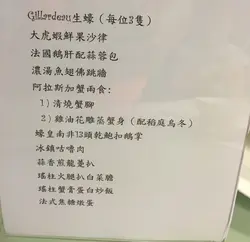 Gillardeau生蠔（每位3隻）
大虎蝦鮮果沙律
法國鵝肝配蒜蓉包
濃湯魚翅佛跳牆
阿拉斯加蟹兩食:
1) 清燒蟹腳
2) 雞油花雕蒸蟹身（配稻庭烏冬）
蠔皇南非13頭乾鮑扣鵝掌
冰鎮咕嚕肉
蒜香煎龍躉扒
瑤柱火腿扒白菜膽
瑤柱蟹膏蛋白炒飯
法式焦糖燉蛋